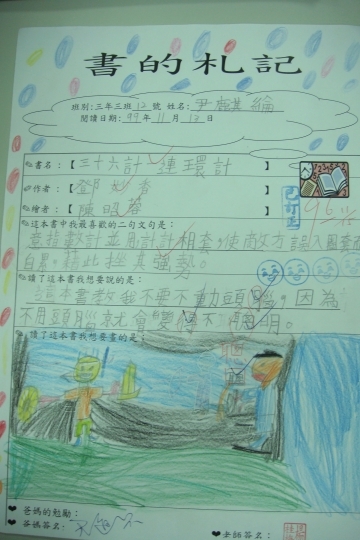 書的札記
班別:三年三班12號 姓名:尹麒綸
閱讀日期:99年11月12日
書名:【三十六計 連環計】
作者:【鄧妙香】
繪者:【陳昭蓉】
這本書中我最喜歡的二句文句是:
意指數計並用計計相套,使敵方誤入圈套而
自累。藉此挫其強勢。
讀了這本書我想要說的是:
這本書教我不要不動頭腦,因為
不用頭腦就會變得不聰明。
讀了這本書我想要畫的是:
爸媽的勉勵:
爸媽簽名:
老師簽名:
已訂正
95